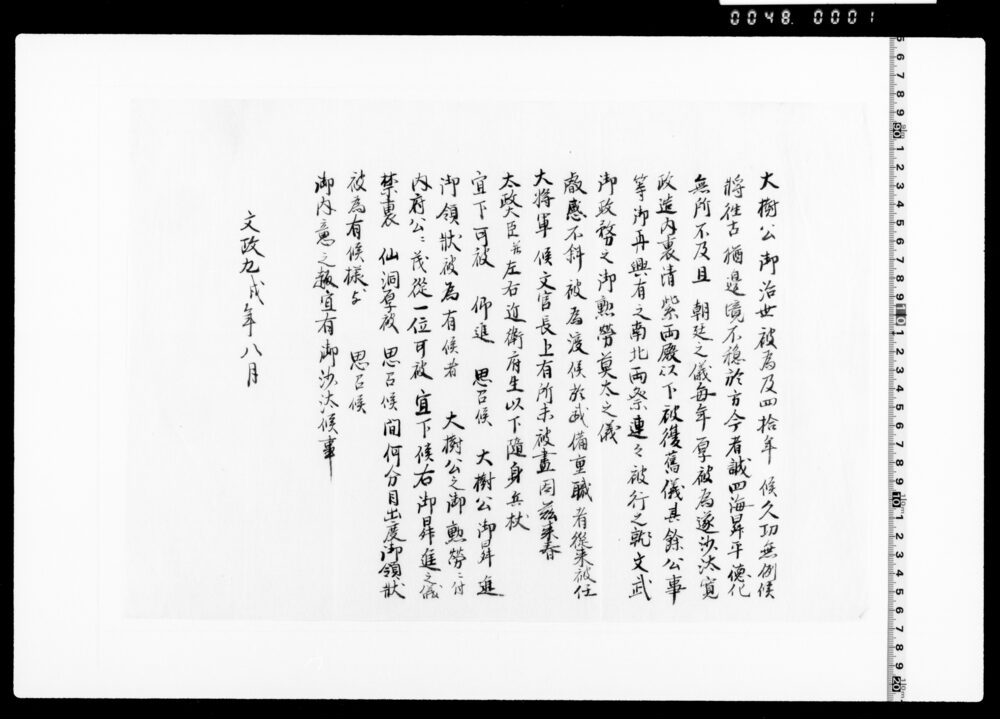 0048. 0001
大樹公御治世被為及四拾年候久功無例候
将往古猶邊境不穏於方今者誠四海昇平徳化
無所不及且 朝廷之儀毎年厚被為遂沙汰寛
政造内裏清紫両殿以下被復舊儀其餘公事
等御再興有之南北両祭連々被行之就文武
御政務之御勲労莫太之儀
叡感不斜被為渡候於武備重職者従来被任
大将軍候文官長上有所未被盡因茲来春
太政大臣并左右近衛府生以下随身兵杖
宣下可被 仰進 思召候 大樹公御昇進
御領状被為有候者 大樹公之御勲労ニ付
内府公ニ茂従一位可被 宣下候右御昇進之儀
禁裏 仙洞厚被 思召候間何分目出度御領状
被為有候様与 思召候
御内意之趣宜有御沙汰候事
文政九戌年八月